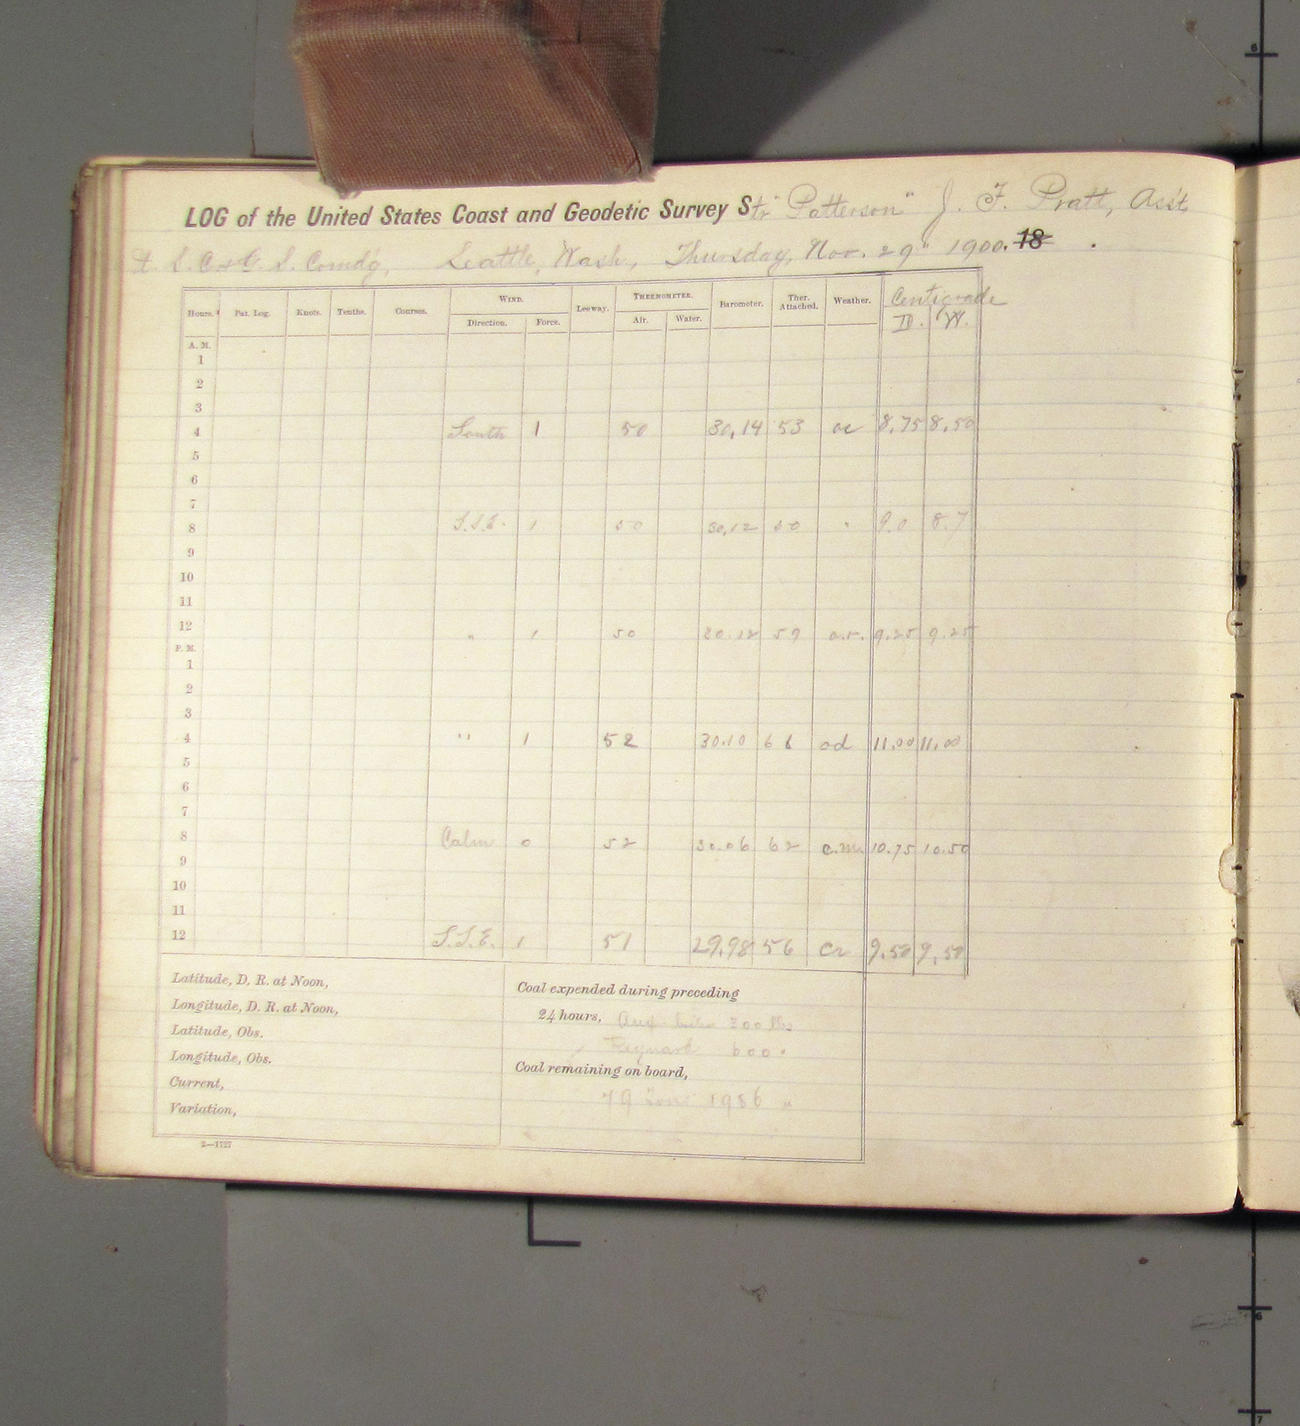 LOG of the United States Coast and Geodetic Survey Str "Patterson" J. F. Pratt, Asst
S. C. & G. S. Comd'g, Seattle, Wash., Thursday, Nov. 29" 1900. 18
Hours. Pat. Log. Knots. Tenths. Courses. WIND. Leeway. THERMOMETER. Barometer. Ther. Attached. Weather. Centigrade
Direction. Force. Air. Water. D. W.
A. M.
1
2
3
4 South 1 50 30.14 53 oc 8.75 8.50
5
6
7
8 S.S.E. 1 50 30.12 60 " 9.0 8.7
9
10
11
12 " 1 50 30.12 59 o.r. 9.25 9.25
P. M.
1
2
3
4 " 1 52 30.10 66 od 11.00 11.00
5
6
7
8 Calm 0 52 30.06 62 c.m. 10.75 10.50
9
10
11
12 S.S.E. 1 51 29.98 56 cr 9.50 9.50
Latitude, D. R. at Noon,
Longitude, D. R. at Noon,
Latitude, Obs.
Longitude, Obs.
Current,
Variation,
Coal expended during preceding
24 hours, 300 lbs
600 "
Coal remaining on board,
79 tons 1986 "
2—1727
6
6
7